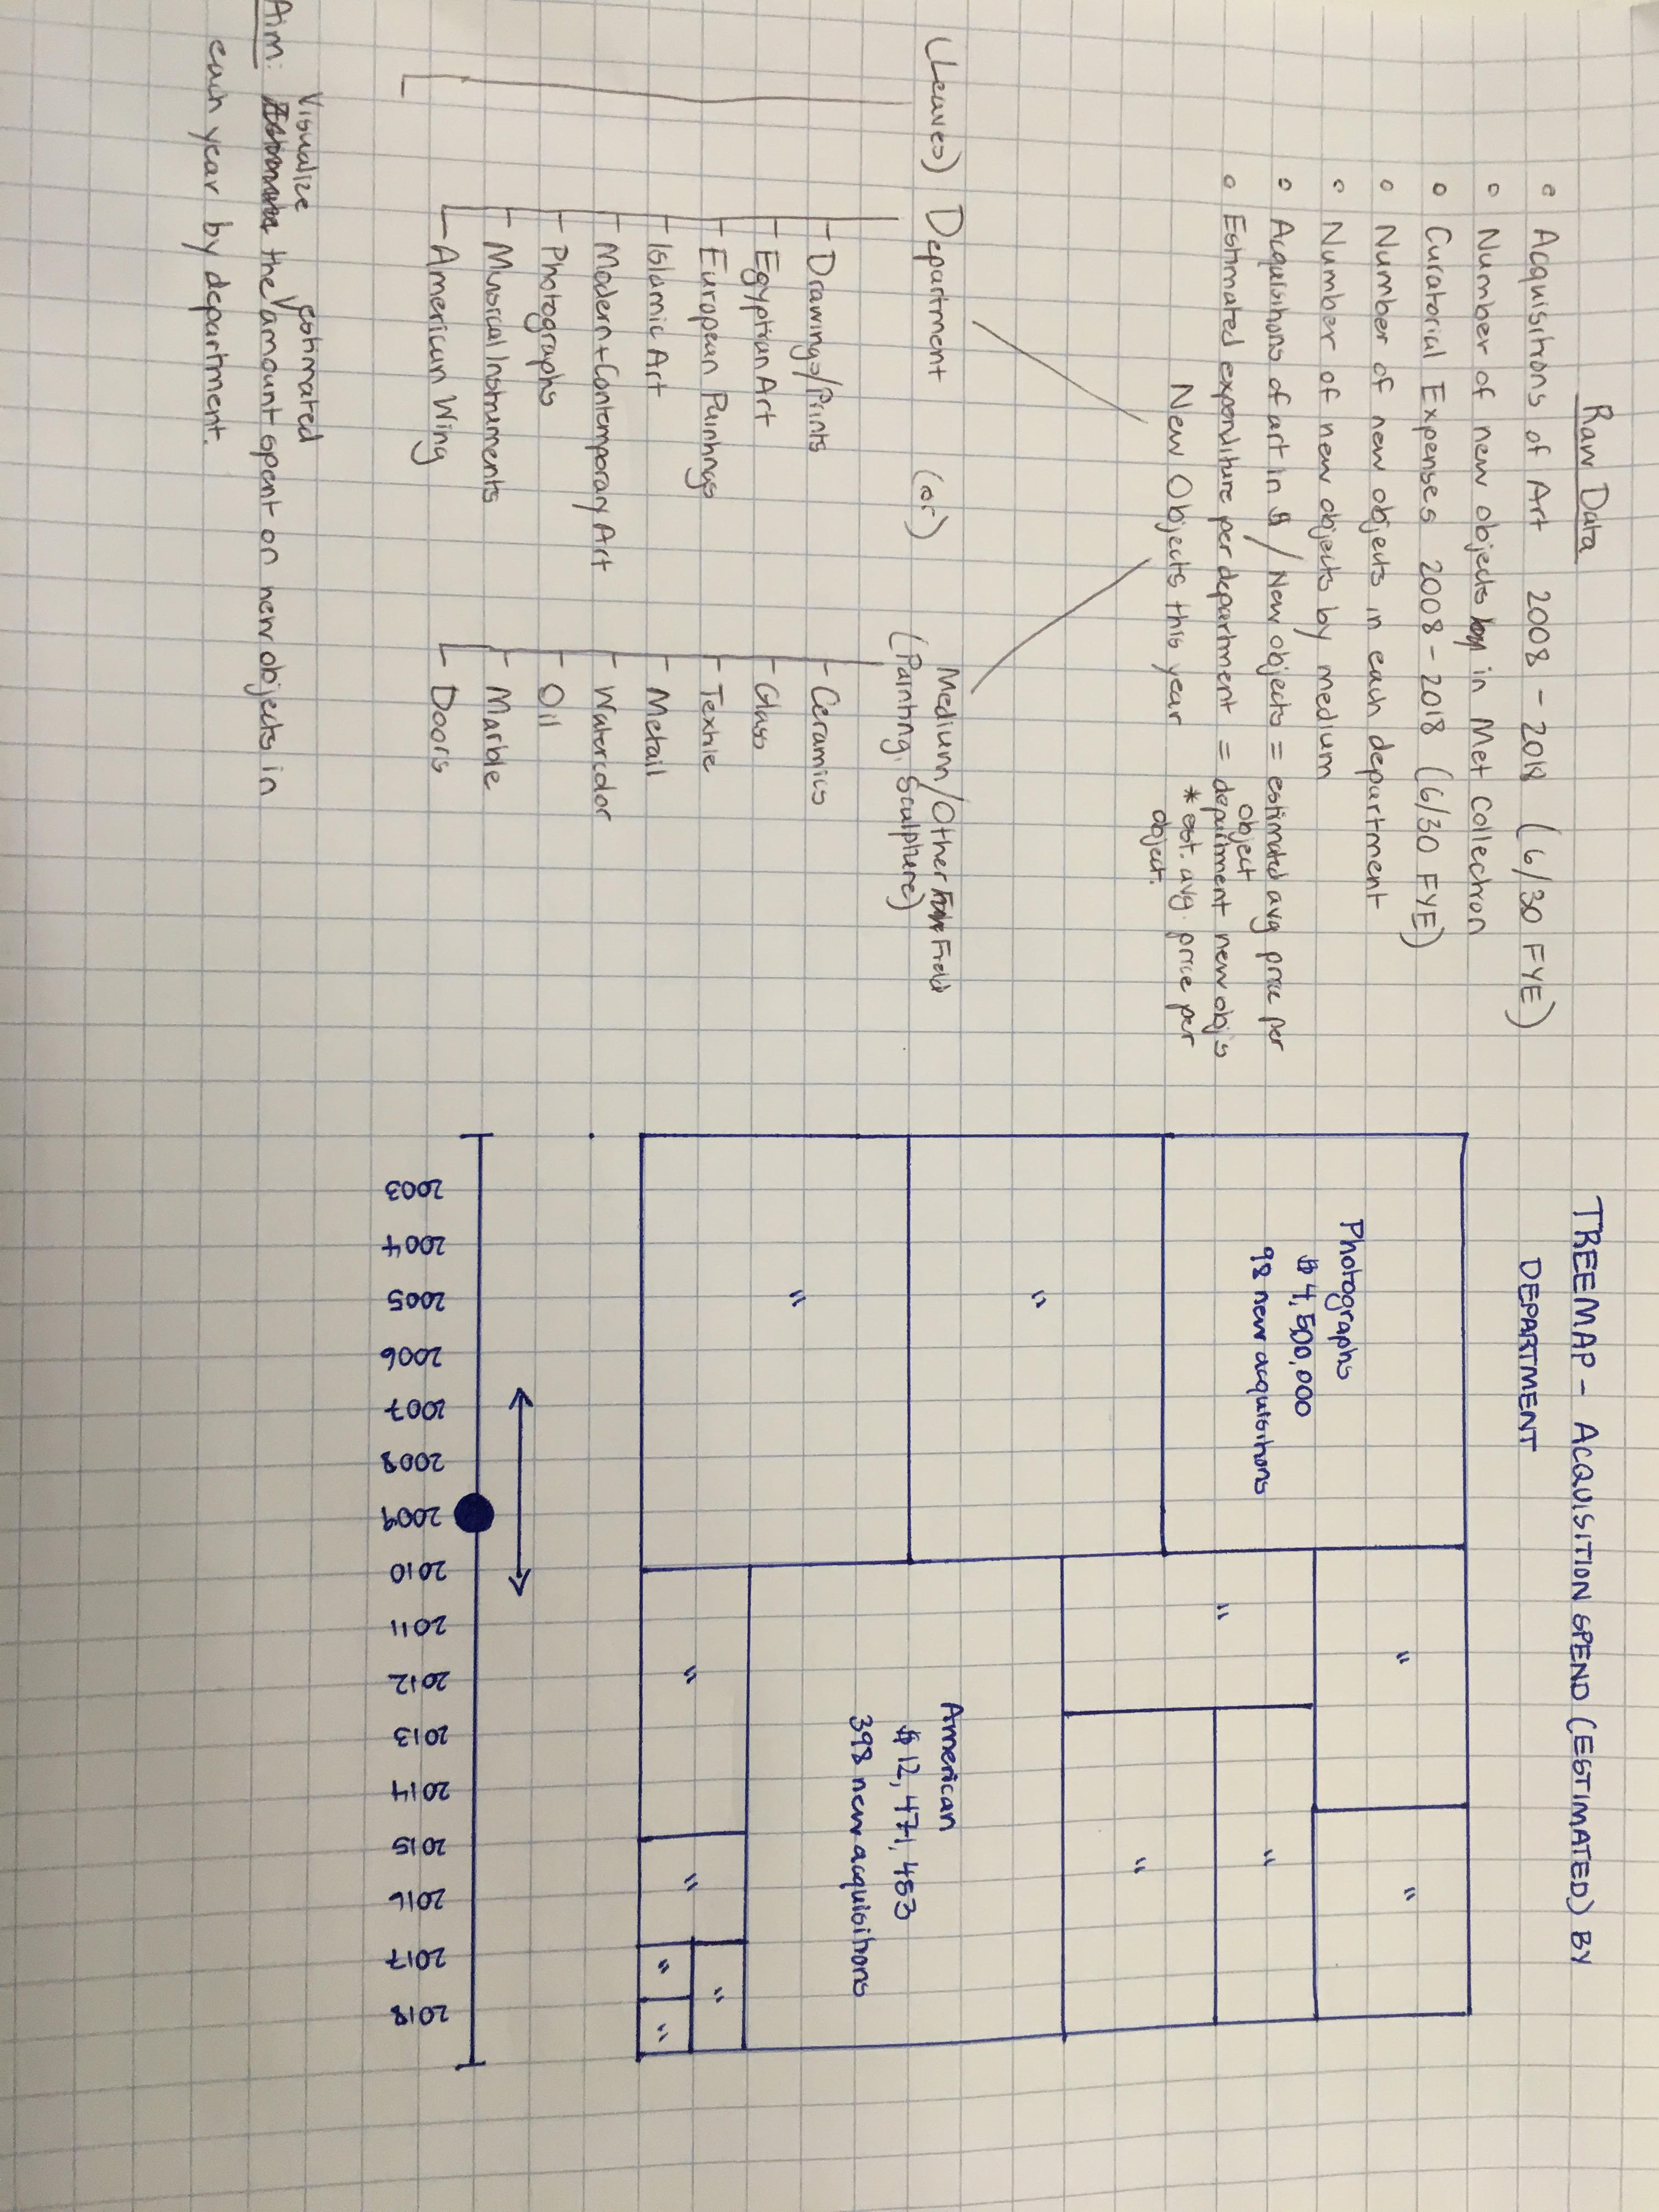 Raw Data
° Acquisitions of Art 2008 - 2018 (6/30 FYE)
° Number of new objects in Met Collection
° Curatorial Expenses 2008 - 2018 (6/30 FYE)
° Number of new objects in each department
° Number of new objects by medium
° Acquisitions of art in $ / New objects = estimated avg price per
object
° Estimated expenditure per department = department new objs
* est. avg. price per
object.
New Objects this year
(Leaves) Department (or) Medium/Other Field
(Painting, Sculpture)
Drawings/Prints
Egyptian Art
European Paintings
Islamic Art
Modern + Contemporary Art
Photographs
Musical Instruments
American Wing
Ceramics
Glass
Textile
Metail
Watercolor
Oil
Marble
Doors
Aim: Visualize the estimated amount spent on new objects in
each year by department.
TREEMAP - ACQUISITION SPEND (ESTIMATED) BY
DEPARTMENT
Photographs
$ 4,500,000
98 new acquisitions
"
"
"
"
"
"
"
American
$ 12,471,453
398 new acquisitions
"
"
"
"
"
2003 2004 2005 2006 2007 2008 2009 2010 2011 2012 2013 2014 2015 2016 2017 2018